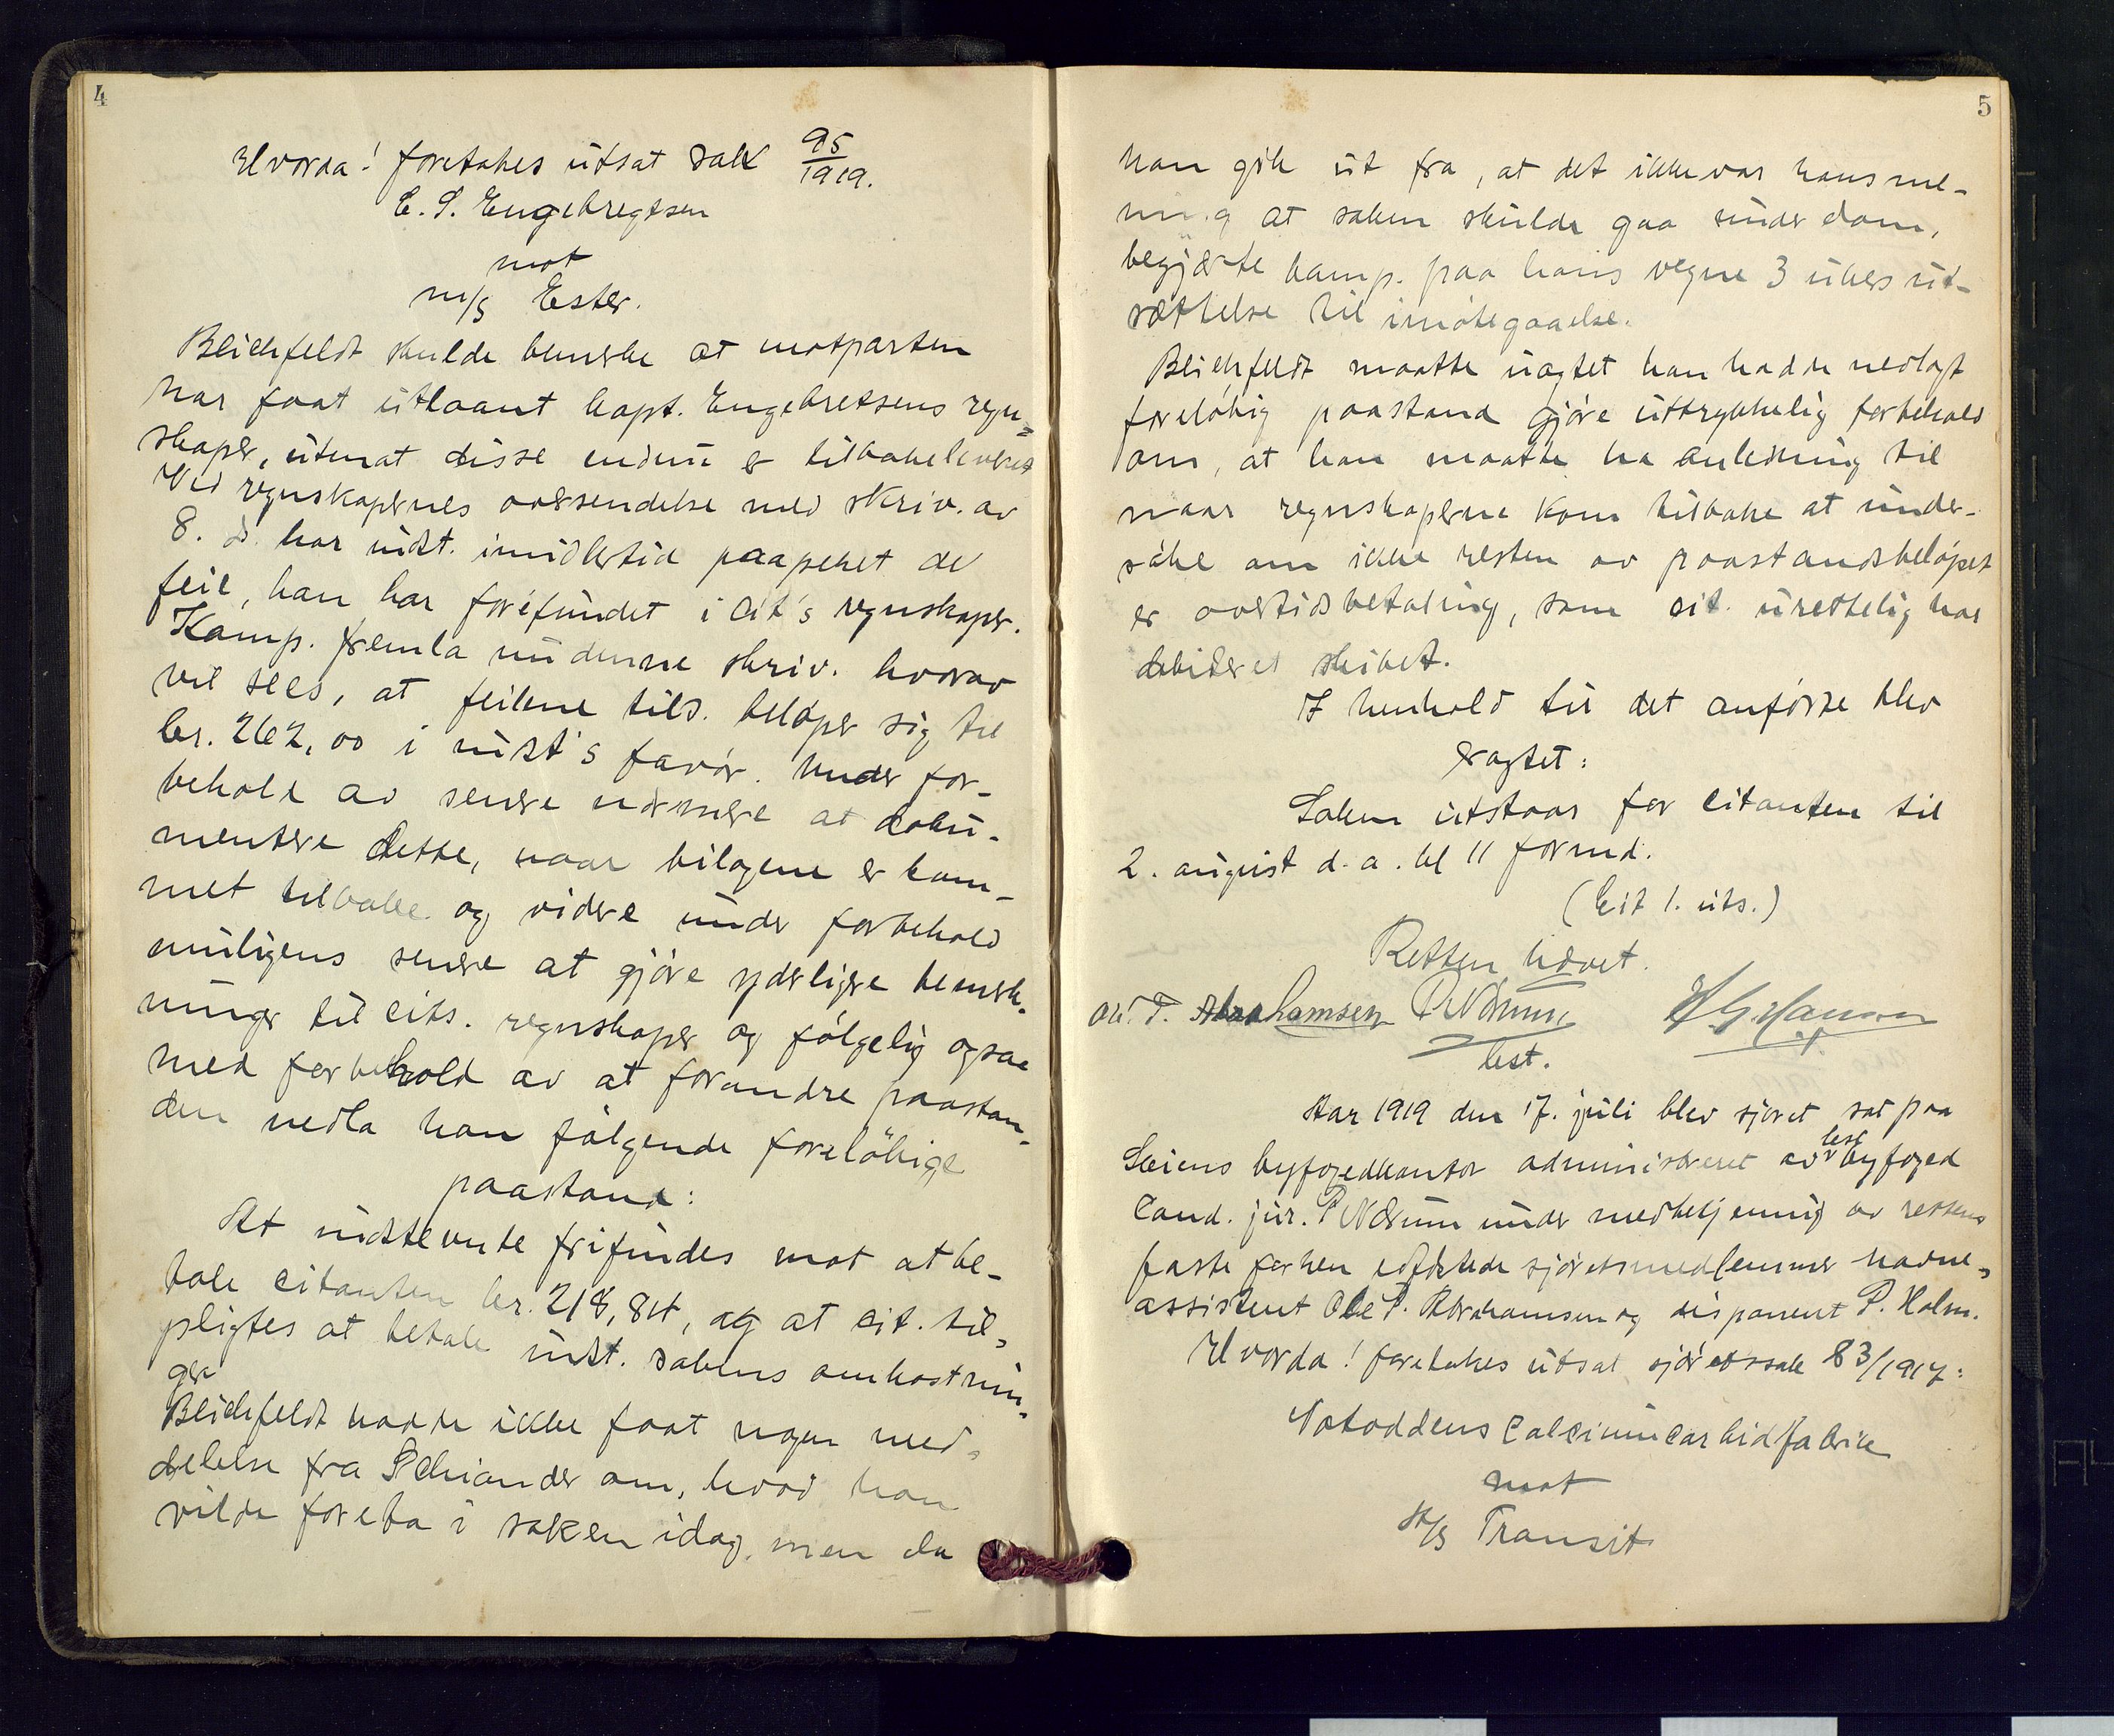 4
Hvorda! foretakes utsat sak 95/1919.
E. S. Engebregtsen
mot
m/s Ester.
Bleichfeldt skulde bemerke at motparten
har faat utlaant kapt. Engebretsens regn=
skaper, uten at disse endnu er tilbakeleveret
Ved regnskapernes oversendelse med skriv. av
8. d. har indst. imidlertid paapeket de
feil, han har forefundet i cit's regnskaper.
Komp. fremla nu denne skriv. hvorav
vil sees, at feilene tils. beløper sig til
kr. 262,00 i indst's favør. Under for-
behold av senere nærmere at doku-
mentere dette, naar bilagene er kom-
met tilbake og videre under forbehold
muligens senere at gjøre yderligere bemerk-
ninger til cits. regnskaper og følgelig ogsaa
med forbehold av at forandre paastan-
den nedla han følgende foreløbige
paastand:
At indstevnte frifindes mot at be-
tale citanten kr. 218,84, og at cit. til-
pligtes at betale indst. sakens omkostnin-
ger
Bleichfeldt hadde ikke faat nogen med-
delelse fra Schiander om, hvad han
vilde foreta i saken idag, men da
5
han gik ut fra, at det ikke var hans me-
ning at saken skulde gaa under dom,
begjærte komp. paa hans vegne 3 ukers ut-
sættelse til imøtegaaelse.
Bleichfeldt maatte uagtet han hadde nedlagt
foreløbig paastand gjøre uttrykkelig forbehold
om, at han maatte ha anledning til
naar regnskaperne kom tilbake at under-
søke om ikke resten av paastandsbeløpet
er overtidsbetaling, som cit. urettelig har
debiteret skibet.
I henhold til det anførte blev
eragtet:
Saken utstaar for citanten til
2. august d. a. kl 11 formd.
(Cit 1. uts.)
Retten hævet.
Ole P. Abrahamsen P Nærum H G Hansen
best.
Aar 1919 den 17. juli blev sjøret sat paa
Skiens byfogedkontor administreret av best byfoged
Cand. jur. P Nærum under medbetjening av rettens
faste forhen edfæstede sjøretsmedlemmer havne-
assistent Ole P. Abrahamsen og disponent P. Holm.
Hvorda! foretakes utsat sjøretssak 83/1917:
Notoddens Calciumcarbidfabrik
mot
A/S Transit